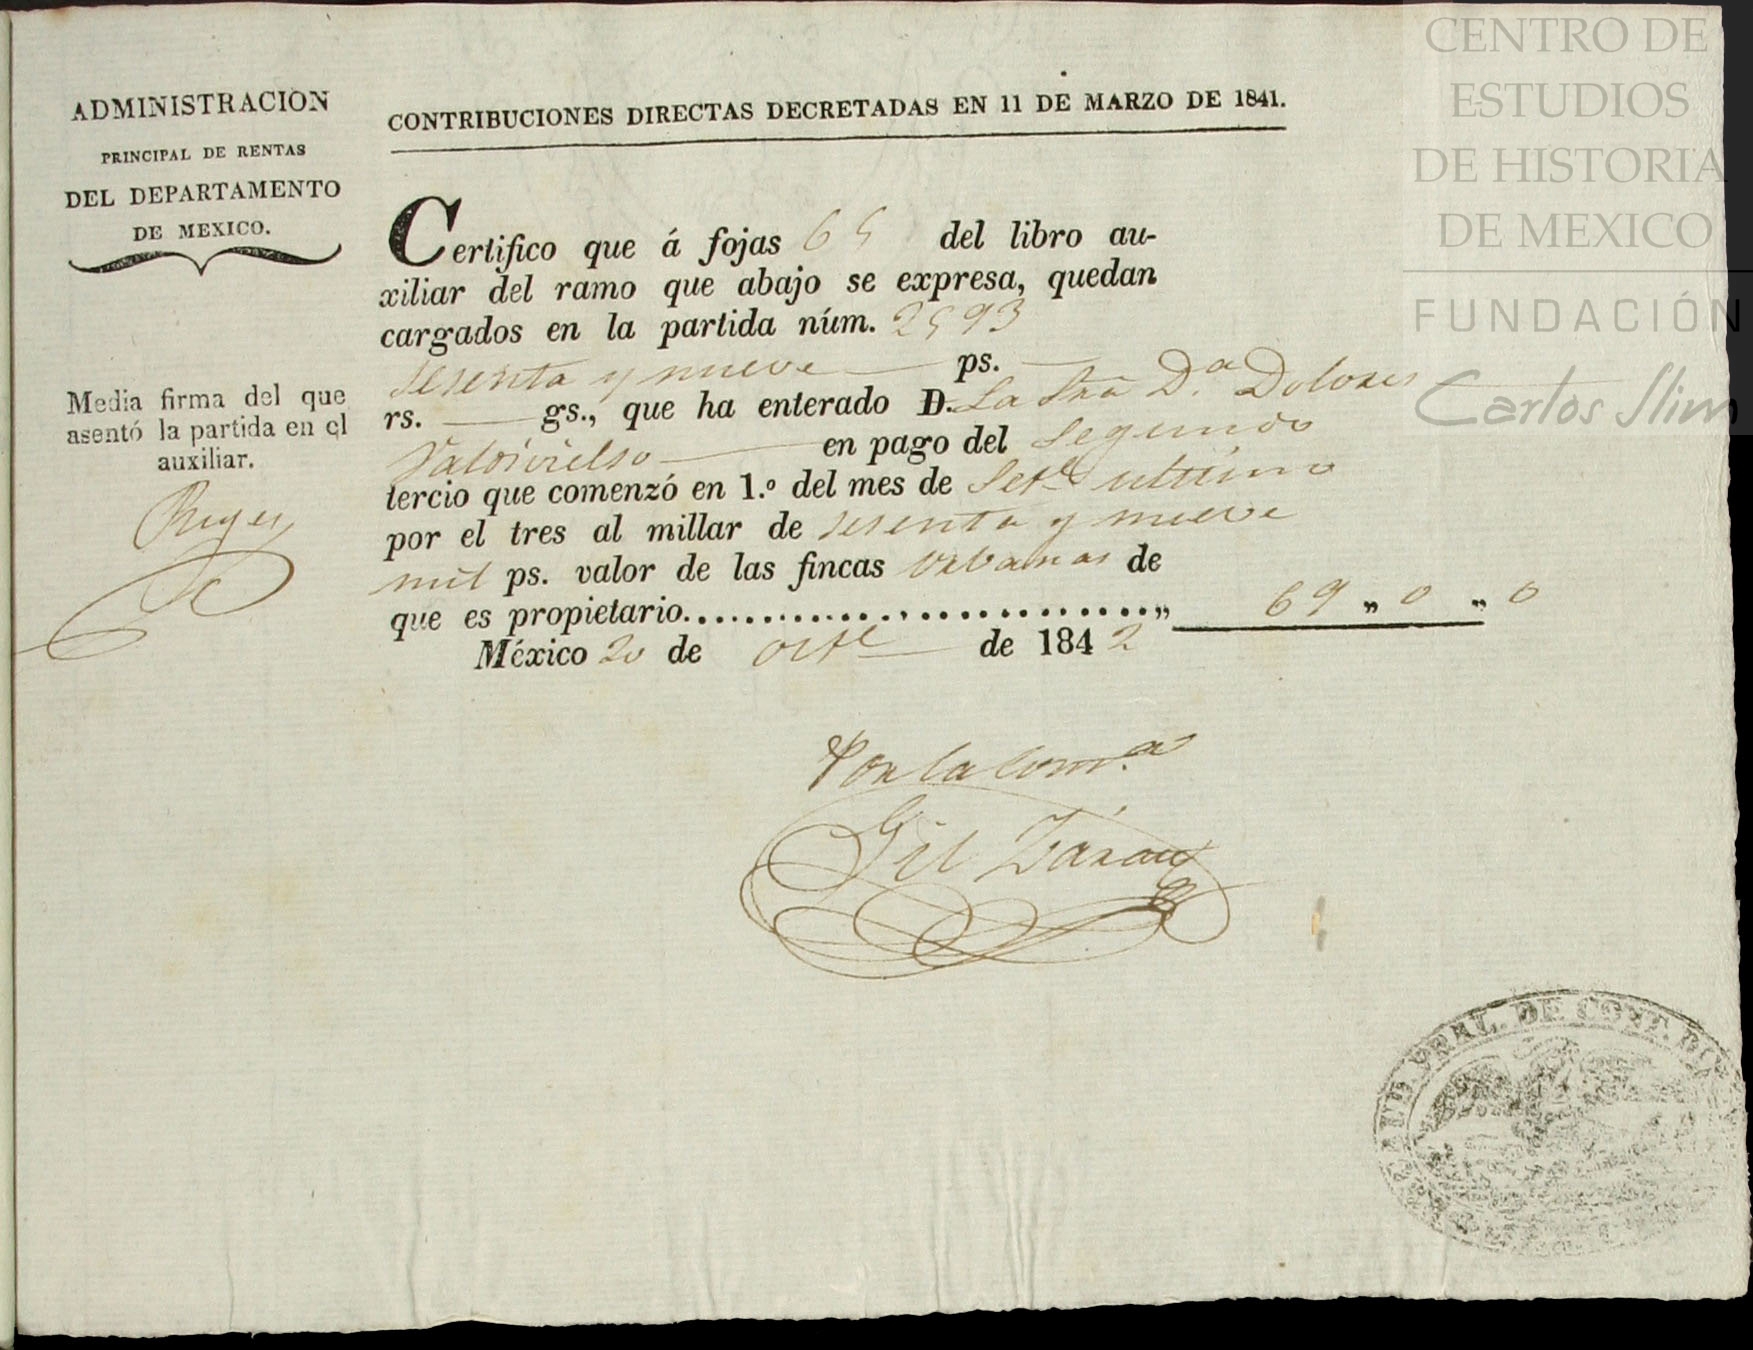 ADMINISTRACION
PRINCIPAL DE RENTAS
DEL DEPARTAMENTO
DE MEXICO.
Media firma del que
asentó la partida en el
auxiliar.
Reyes
CONTRIBUCIONES DIRECTAS DECRETADAS EN 11 DE MARZO DE 1841.
Certifico que á fojas 65 del libro au-
xiliar del ramo que abajo se expresa, quedan
cargados en la partida núm. 2593
sesenta y nueve ps.
rs. gs., que ha enterado D. La Sra Da. Dolores
Valdivielso en pago del segundo
tercio que comenzó en 1.º del mes de Sete. ultimo
por el tres al millar de sesenta y nueve
mil ps. valor de las fincas urbanas de
que es propietario............................„ 69 „ 0 „ 0
México 20 de octe de 1842
Por la com.a
Gil
GRAL. DE
CENTRO DE
ESTUDIOS
DE HISTORIA
DE MEXICO
FUNDACIÓN
Carlos Slim